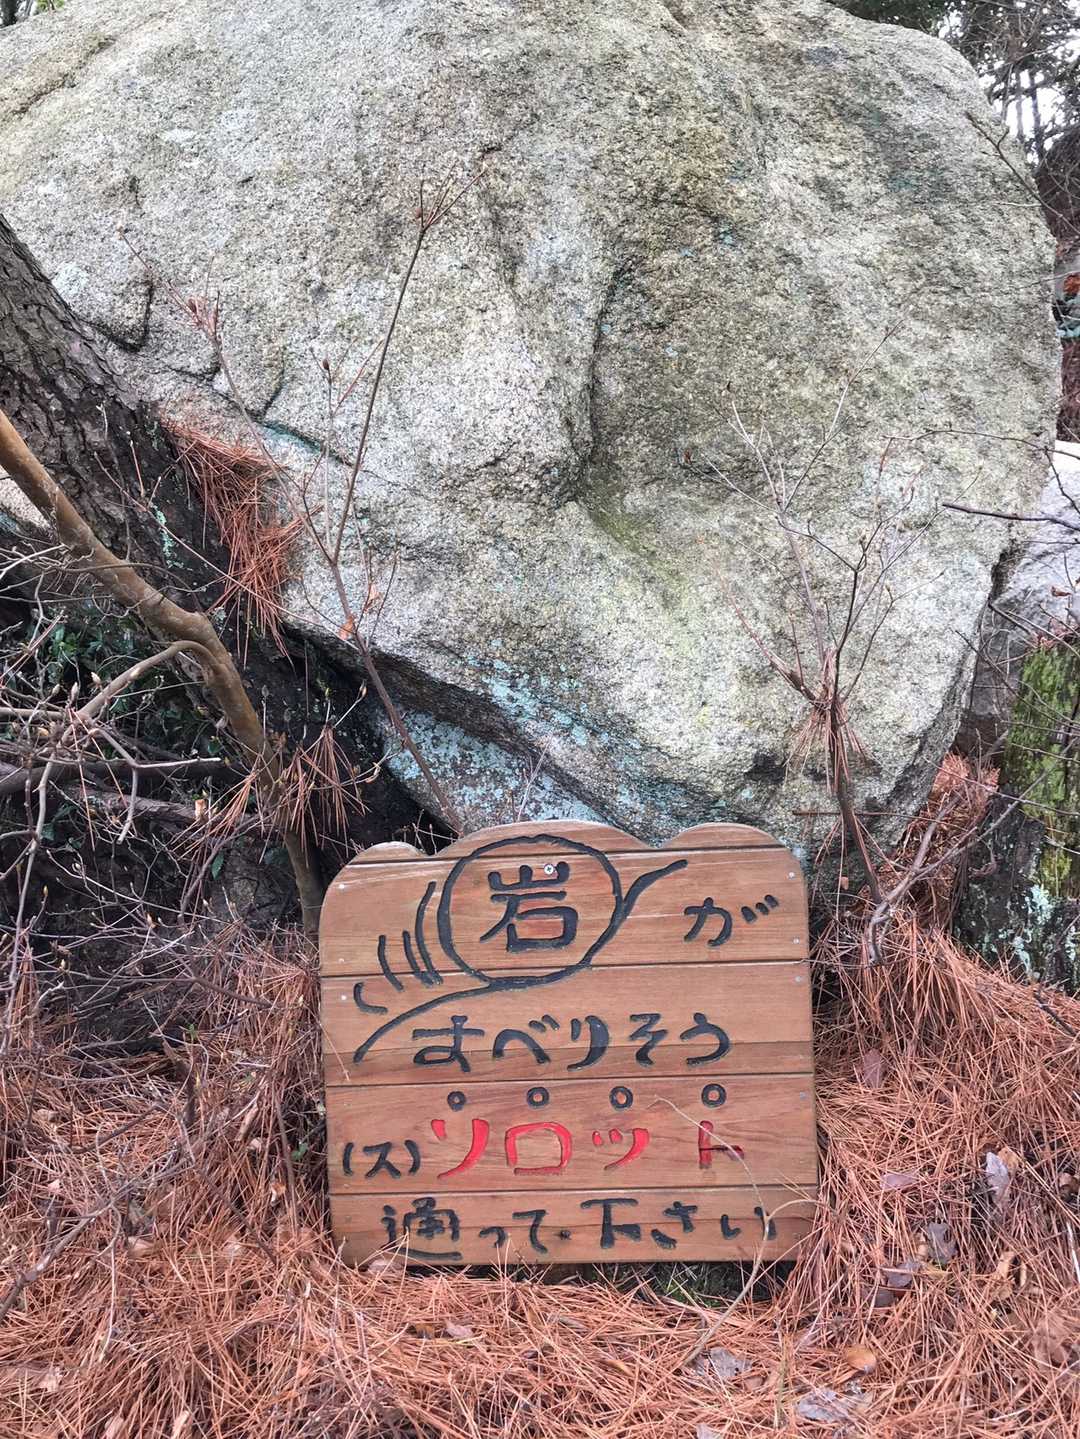 岩が
すべりそう
(ス)ソロット
通って下さい